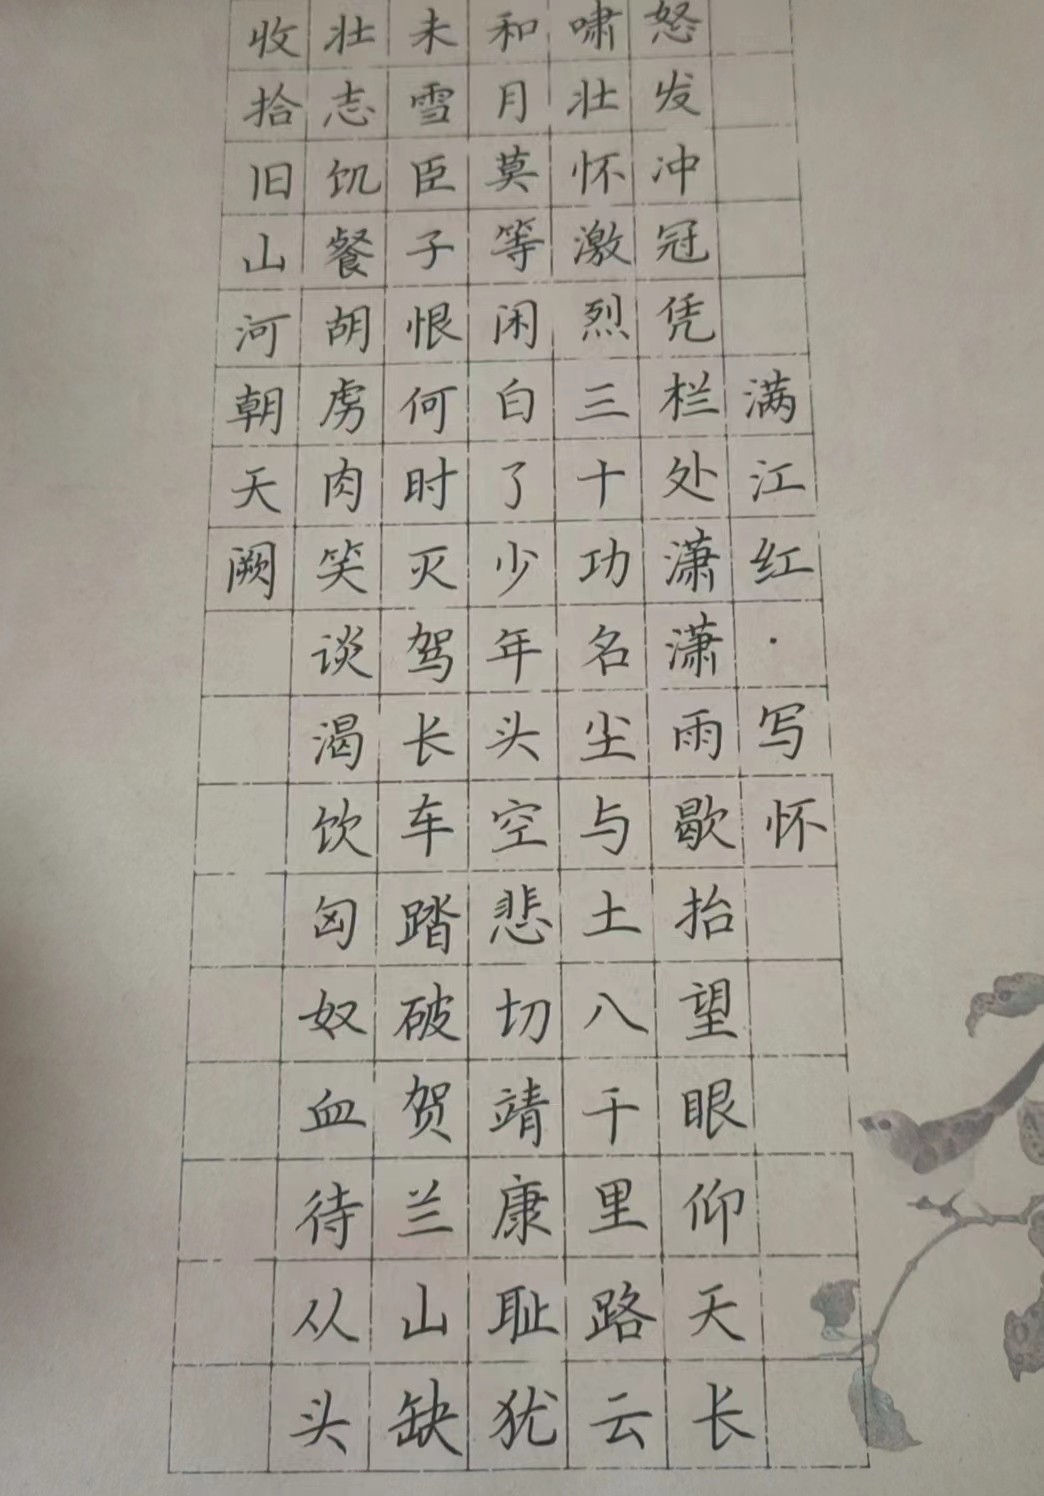 满江红·写怀
怒发冲冠凭栏处潇潇雨歇抬望眼仰天长
啸壮怀激烈三十功名尘与土八千里路云
和月莫等闲白了少年头空悲切靖康耻犹
未雪臣子恨何时灭驾长车踏破贺兰山缺
壮志饥餐胡虏肉笑谈渴饮匈奴血待从头
收拾旧山河朝天阙